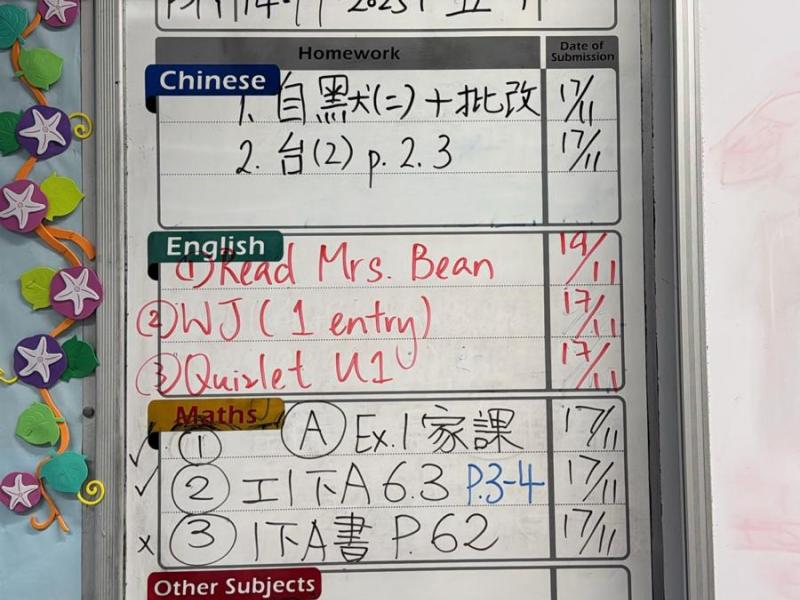 2025
Homework Date of Submission
Chinese
1. 自默(二)+批改 17/11
2. 台(2) p. 2. 3 17/11
English
① Read Mrs. Bean 19/11
② WJ (1 entry) 17/11
③ Quizlet U1 17/11
Maths
✓ ① Ⓐ Ex.1 家課 17/11
✓ ② 工1下A 6.3 P.3-4 17/11
x ③ 1下A書 P.62 17/11
Other Subjects